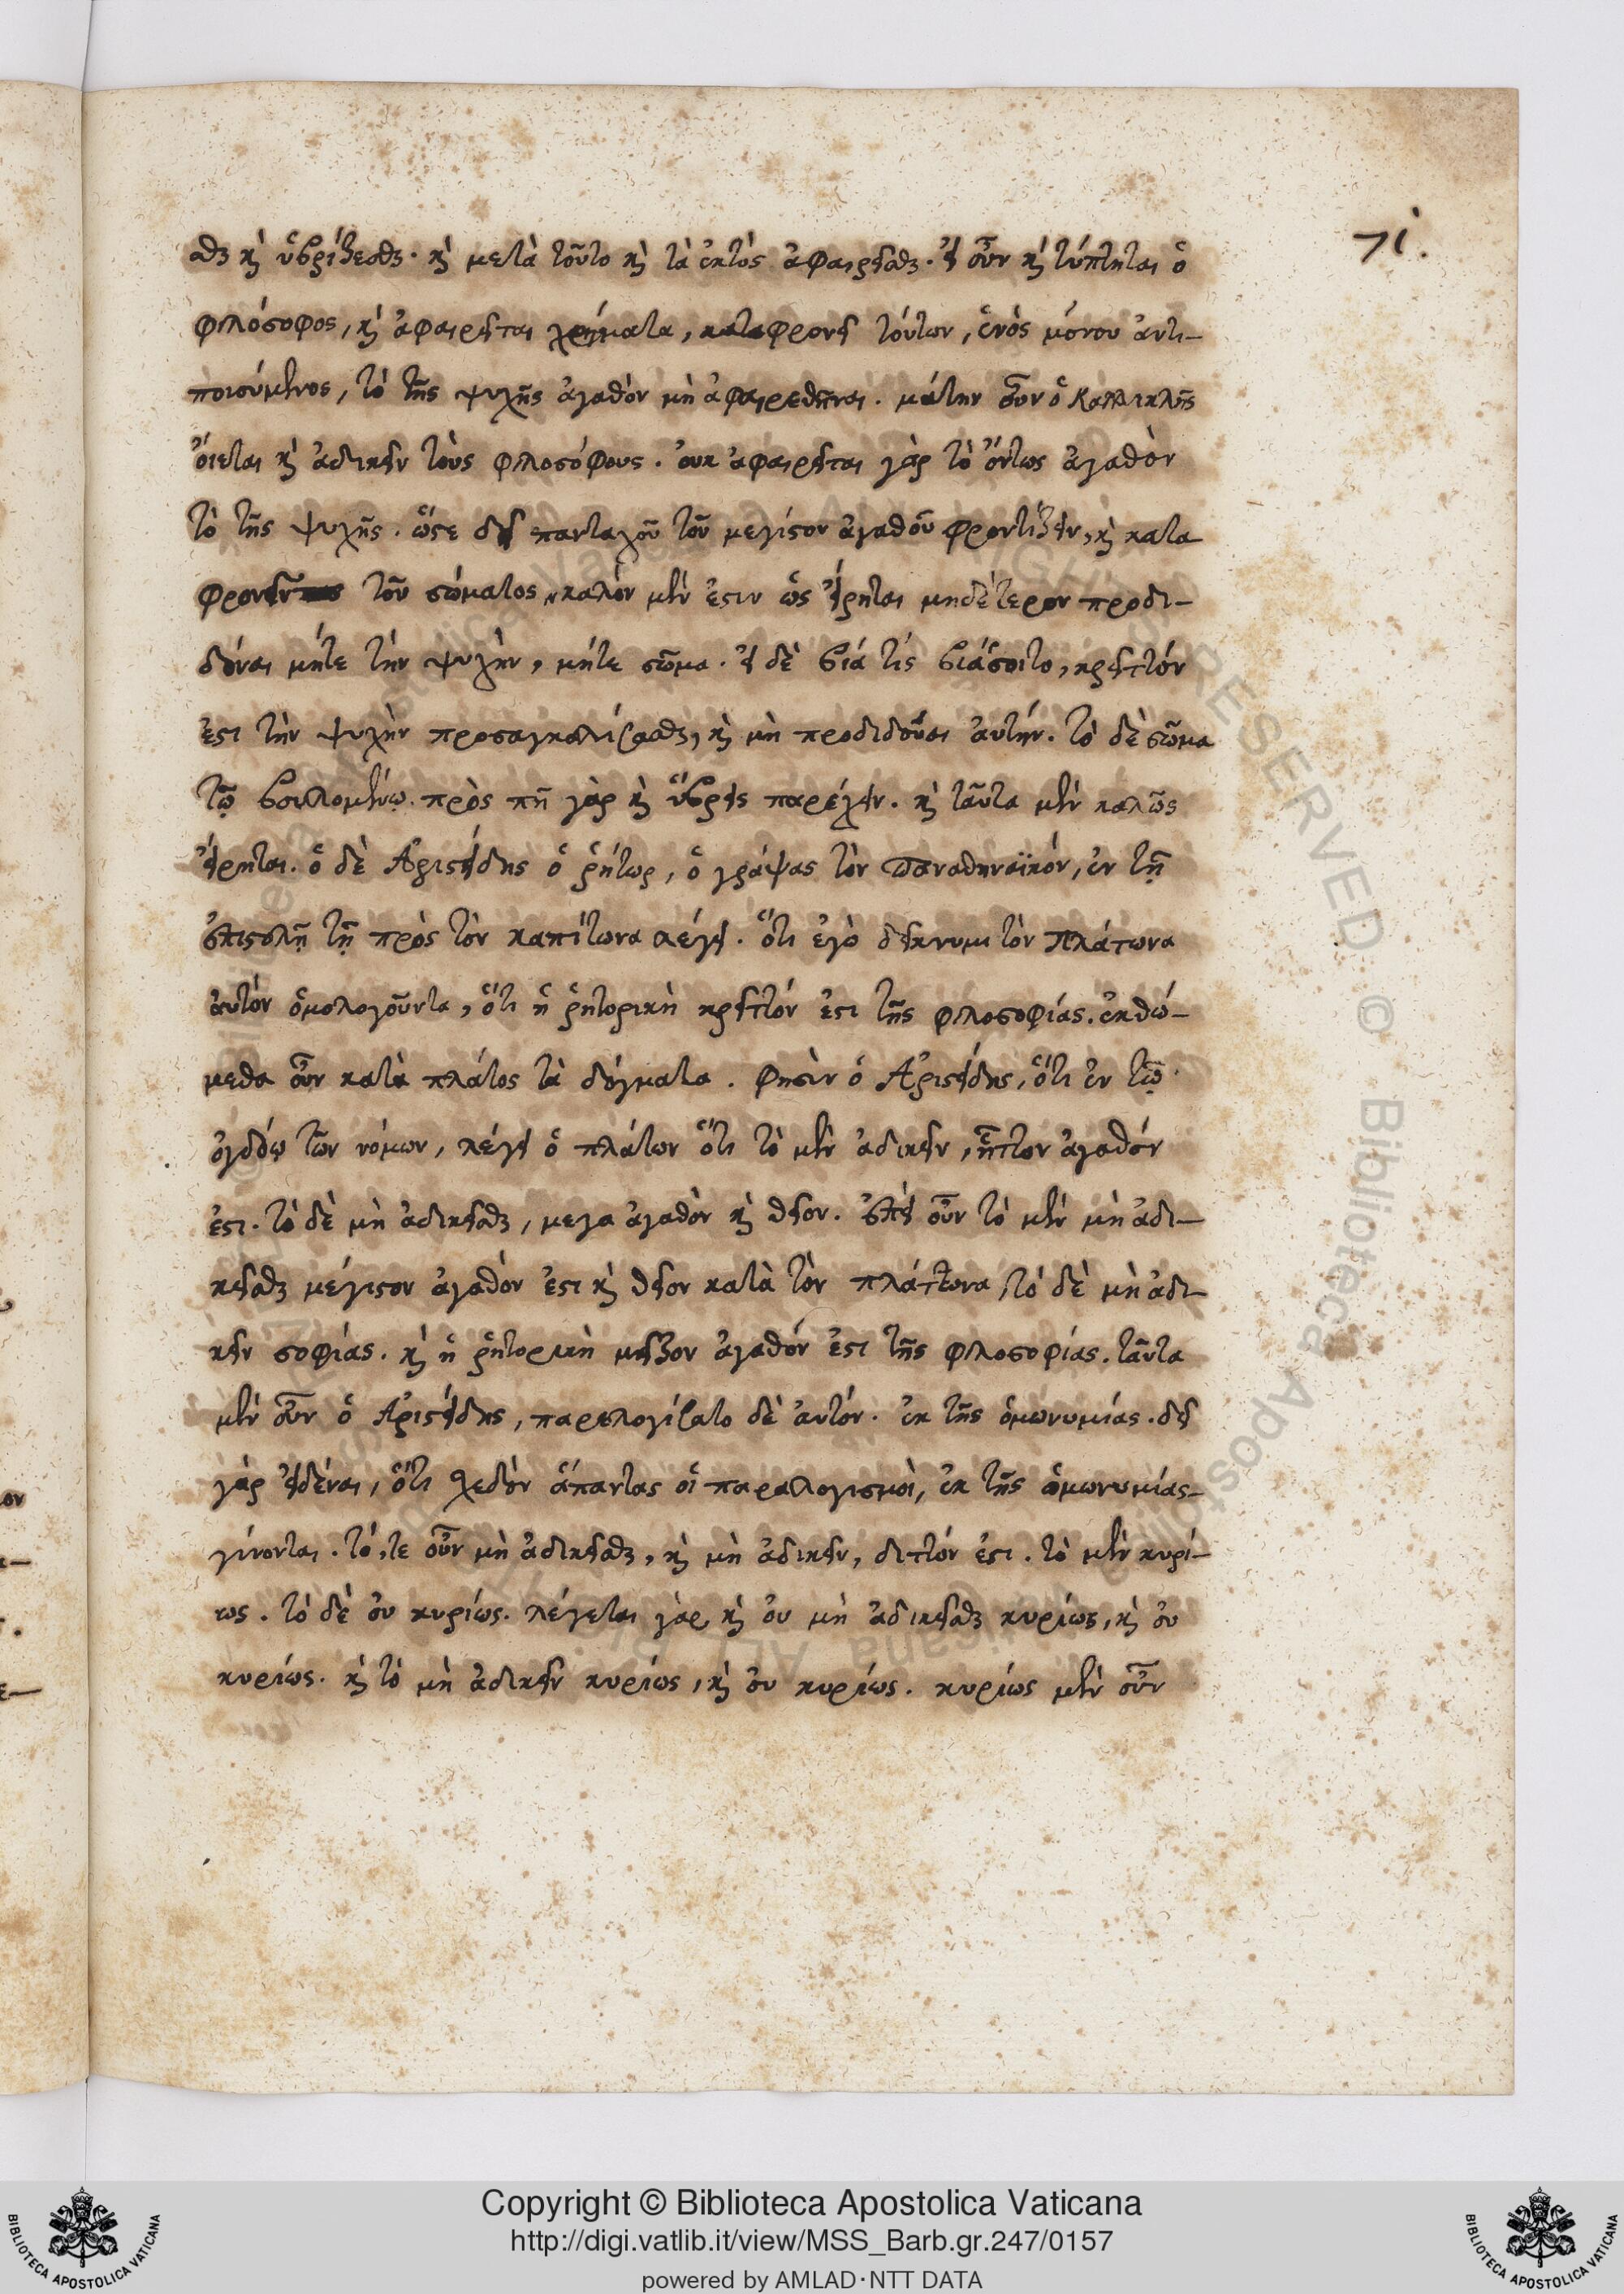 71.
σθαι καὶ ὑβρίζεσθαι. καὶ μετὰ τοῦτο καὶ τὰ ἐκτὸς ἀφαιρεῖσθαι. εἰ οὖν καὶ τύπτηται ὁ
φιλόσοφος, καὶ ἀφαιρεῖται χρήματα, καταφρονεῖ τούτων, ἑνὸς μόνου ἀντι-
ποιούμενος, τὸ τῆς ψυχῆς ἀγαθὸν μὴ ἀφαιρεθῆναι. μάτην οὖν ὁ Καλλικλῆς
οἴεται καὶ ἀδικεῖν τοὺς φιλοσόφους. οὐκ ἀφαιρεῖται γὰρ τὸ ὄντως ἀγαθὸν
τὸ τῆς ψυχῆς. ὥστε δεῖ πανταχοῦ τοῦ μεγίστου ἀγαθοῦ φροντίζειν, καὶ κατα
φρονεῖν τοῦ σώματος, καλὸν μέν ἐστιν ὡς εἴρηται μηδέτερον προδι-
δόναι μήτε τὴν ψυχὴν, μήτε σῶμα. εἰ δὲ βιά τίς βιάσοιτο, κρεῖττόν
ἐστι τὴν ψυχὴν προσαγκαλίσασθαι, καὶ μὴ προδιδοῦσι αὐτήν. τὸ δὲ σῶμα
τῷ βουλομένῳ πρὸς πῆ γὰρ καὶ ὕβρεις παρέχειν. καὶ ταῦτα μὲν καλῶς
εἴρηται. ὁ δὲ Ἀριστείδης ὁ ῥήτωρ, ὁ γράψας τὸν Παναθηναϊκόν, ἐν τῇ
ἐπιστολῇ τῇ πρὸς τὸν καπίτωνα λέγει. ὅτι ἐγὼ δείκνυμι τὸν πλάτωνα
αὐτὸν ὁμολογοῦντα, ὅτι ἡ ῥητορικὴ κρεῖττόν ἐστι τῆς φιλοσοφίας. ἐκθώ-
μεθα οὖν κατὰ πλάτος τὰ δόγματα. φησὶν ὁ Ἀριστείδης, ὅτι ἐν τῷ
ὀγδόῳ τῶν νόμων, λέγει ὁ πλάτων ὅτι τὸ μὲν ἀδικεῖν, ἧττον ἀγαθόν
ἐστι. τὸ δὲ μὴ ἀδικεῖσθαι, μεγα ἀγαθὸν καὶ θεῖον. ἐπεὶ οὖν τὸ μὲν μὴ ἀδι-
κεῖσθαι μέγιστον ἀγαθόν ἐστι καὶ θεῖον κατὰ τὸν πλάττωνα, τὸ δὲ μὴ ἀδι-
κεῖν σοφίας. καὶ ἡ ῥητορικὴ μεῖζον ἀγαθόν ἐστι τῆς φιλοσοφίας. ταῦτα
μὲν οὖν ὁ Ἀριστείδης, παρελογίσατο δὲ αὐτόν. ἐκ τῆς ὁμωνυμίας. δεῖ
γὰρ εἰδέναι, ὅτι σχεδὸν ἅπαντας οἱ παραλογισμοὶ, ἐκ τῆς ὁμωνυμίας
γίνονται. τό,τε οὖν μὴ ἀδικεῖσθαι, καὶ μὴ ἀδικεῖν, διττόν ἐστι. τὸ μὲν κυρί-
ως. τὸ δὲ οὐ κυρίως. λέγεται γὰρ καὶ οὐ μὴ ἀδικεῖσθαι κυρίως, καὶ οὐ
κυρίως. καὶ τὸ μὴ ἀδικεῖν κυρίως, καὶ οὐ κυρίως. κυρίως μὲν οὖν
Copyright © Biblioteca Apostolica Vaticana
http://digi.vatlib.it/view/MSS_Barb.gr.247/0157
powered by AMLAD·NTT DATA
BIBLIOTECA APOSTOLICA VATICANA
BIBLIOTECA APOSTOLICA VATICANA